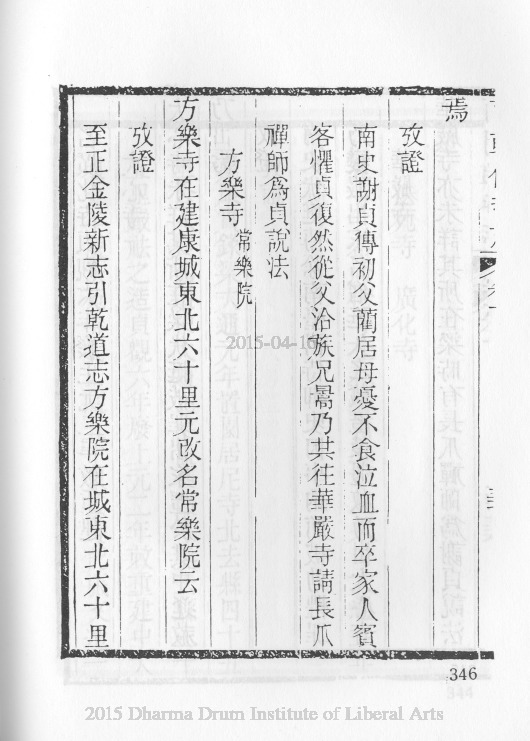 焉
攷證
南史謝貞傳初父藺居母憂不食泣血而卒家人賓
客懼貞復然從父洽族兄暠乃共往華嚴寺請長爪
禪師爲貞說法
方樂寺 常樂院
方樂寺在建康城東北六十里元改名常樂院云
攷證
至正金陵新志引乾道志方樂院在城東北六十里
2015-04-16
346
2015 Dharma Drum Institute of Liberal Arts